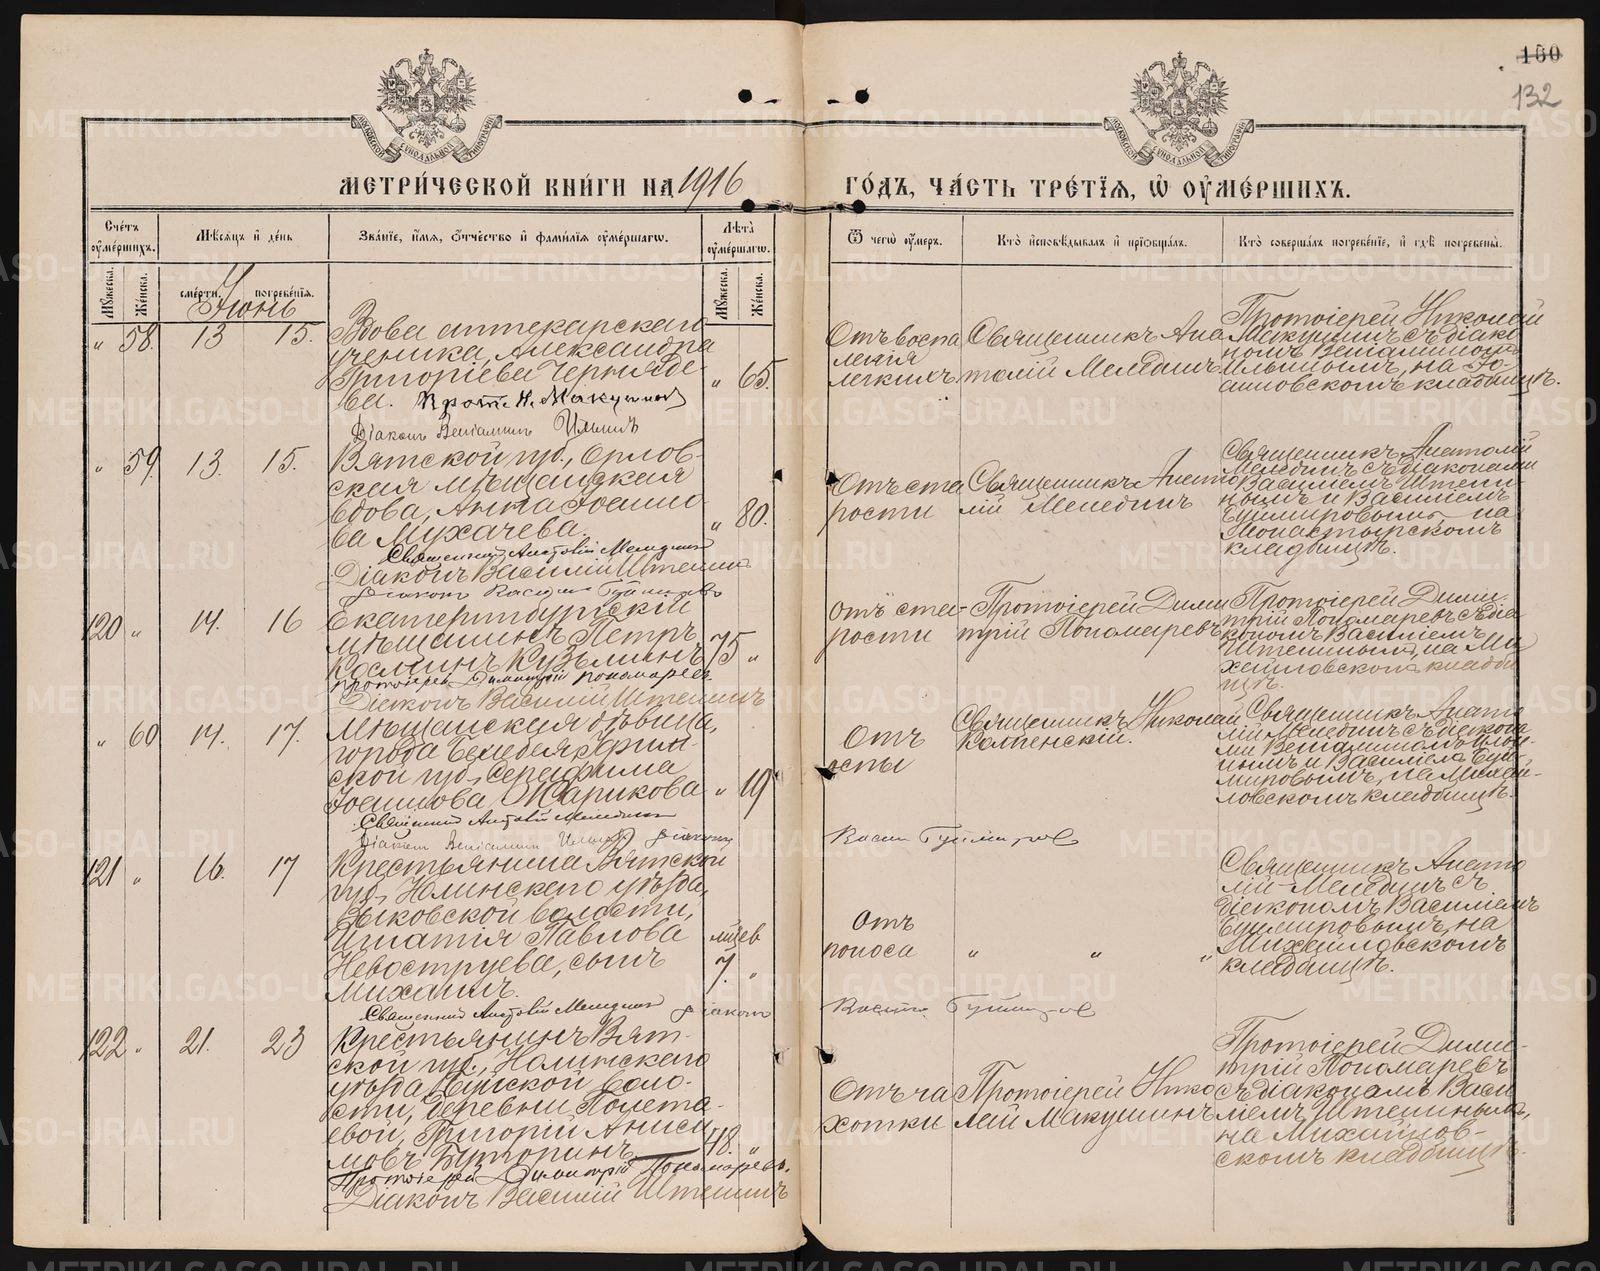 160
132
МЕТРИ́ЧЕСКОЙ КНИ́ГИ НА 1916
ГО́ДЪ, ЧА́СТЬ ТРЕ́ТІЯ, Ѡ҆ ОУ҆МЕ́РШИХЪ.
Сче́тъ оу҆ме́ршихъ.
Мѣ́сяцъ и҆ де́нь
Зва́нїе, и҆́мя, ѻ҆́тчество и҆ фамилїя оу҆ме́ршагѡ.
Лѣ́та оу҆ме́ршагѡ.
Ѿ чегѡ̀ оу҆́меръ.
Кто̀ и҆сповѣ́дывалъ и҆ прїѻбща́лъ.
Кто̀ соверша́лъ погребе́нїе, и҆ гдѣ̀ погребены̀.
Мꙋ́жеска.
Же́нска.
сме́рти.
погребе́нїя.
Мꙋ́жеска.
Же́нска.
Іюнь
„ 58. 13 15.
Вдова аптекарскаго
ученика, Александра
Григоріева Черняде-
ва.
„ 65.
Прот. Н. Макушинъ
Діаконъ Веніаминъ Ильинъ
Отъ воспа
ленія
легкихъ
Священникъ Ана
толій Мелединъ
Протоіерей Николай
Макушинъ съ діако
номъ Веніаминомъ
Ильинымъ, на Іо-
анновскомъ кладбищѣ.
„ 59. 13. 15.
Вятской губ., Орлов-
ская мѣщанская
вдова, Анна Іоанно
ва Мухачева.
„ 80.
Священникъ Анатолій Мелединъ
Діаконъ Василій Штенинъ
Отъ ста
рости
Священникъ Анато
лій Мелединъ
Священникъ Анатолій
Мелединъ съ діаконами
Василіемъ Штени-
нымъ и Василіемъ
на
Монастырскомъ
кладбищѣ.
120 „ 14. 16
Екатеринбургскій
мѣщанинъ Петръ
Косминъ Кузьминъ
75 „
Протоіерей Димитрій Пономаревъ.
Діаконъ Василій Штенинъ
отъ ста-
рости
Протоіерей Дими
трій Пономаревъ
Протоіерей Дими
трій Пономаревъ съ діа
кономъ Василіемъ
Штенинымъ, на Ми
хайловскомъ кладби
щѣ.
„ 60 14. 17.
Мѣщанская дѣвица,
города Белебея, Уфим-
ской губ., Серафима
Іоаннова Жарикова
„ 19
Священникъ Анатолій Мелединъ
Діаконъ Веніаминъ Ильинъ Діаконъ
Отъ
оспы
Священникъ Николай
Священникъ Анато
лій Мелединъ съ діакона
ми Веніаминомъ Ильи-
нымъ и Василіемъ
на Михай-
ловскомъ кладбищѣ.
121 „ 16. 17
Крестьянина Вятской
губ., Нолинскаго уѣзда,
волости,
Игнатія Павлова
Невоструева, сынъ
Михаилъ.
мѣсяцев
7. „
Священникъ Анатолій Мелединъ Діаконъ
Отъ
поноса
„ „ „
Священникъ Анато
лій Мелединъ съ
діакономъ Василіемъ
на
Михайловскомъ
кладбищѣ.
122 „ 21. 23
Крестьянинъ Вят-
ской губ., Нолинскаго
уѣзда, воло-
сти, деревни
Григорій Аниси
мовъ Буторинъ
48. „
Протоіерей Димитрій Пономаревъ.
Діаконъ Василій Штенинъ
Отъ ча
хотки
Протоіерей Нико
лай Макушинъ
Протоіерей Дими-
трій Пономаревъ
съ діакономъ Васи
ліемъ Штенинымъ,
на Михайлов-
скомъ кладбищѣ.
METRIKI.GASO-URAL.RU